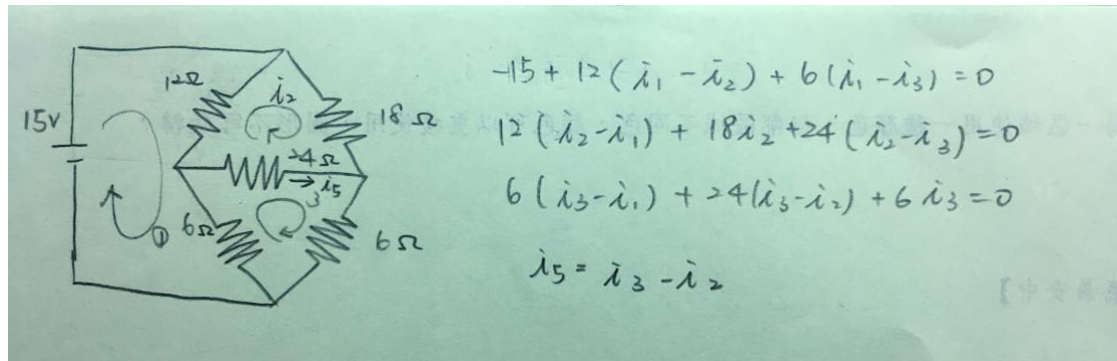 12Ω
i₂
18Ω
15V
24Ω
→ i₅
3
①
6Ω
6Ω
-15 + 12 ( i₁ - i₂ ) + 6 ( i₁ - i₃ ) = 0
12 ( i₂ - i₁ ) + 18 i₂ + 24 ( i₂ - i₃ ) = 0
6 ( i₃ - i₁ ) + 24 ( i₃ - i₂ ) + 6 i₃ = 0
i₅ = i₃ - i₂